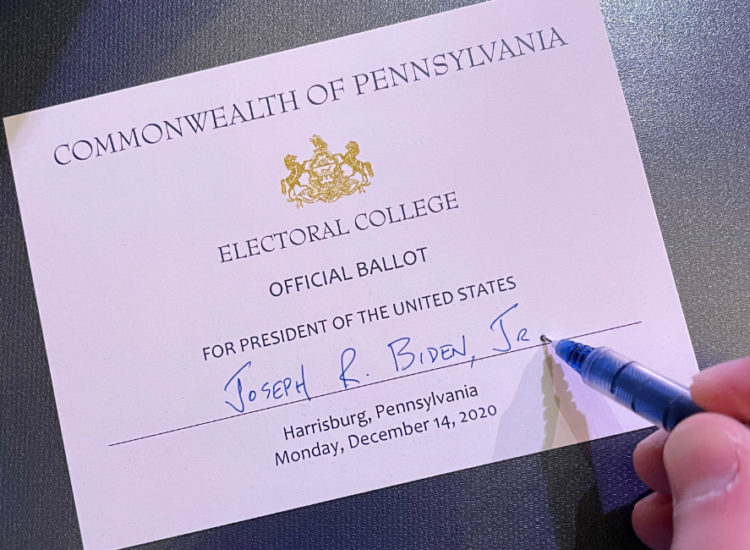 COMMONWEALTH OF PENNSYLVANIA
ELECTORAL COLLEGE
OFFICIAL BALLOT
FOR PRESIDENT OF THE UNITED STATES
JOSEPH R. BIDEN, JR
Harrisburg, Pennsylvania
Monday, December 14, 2020